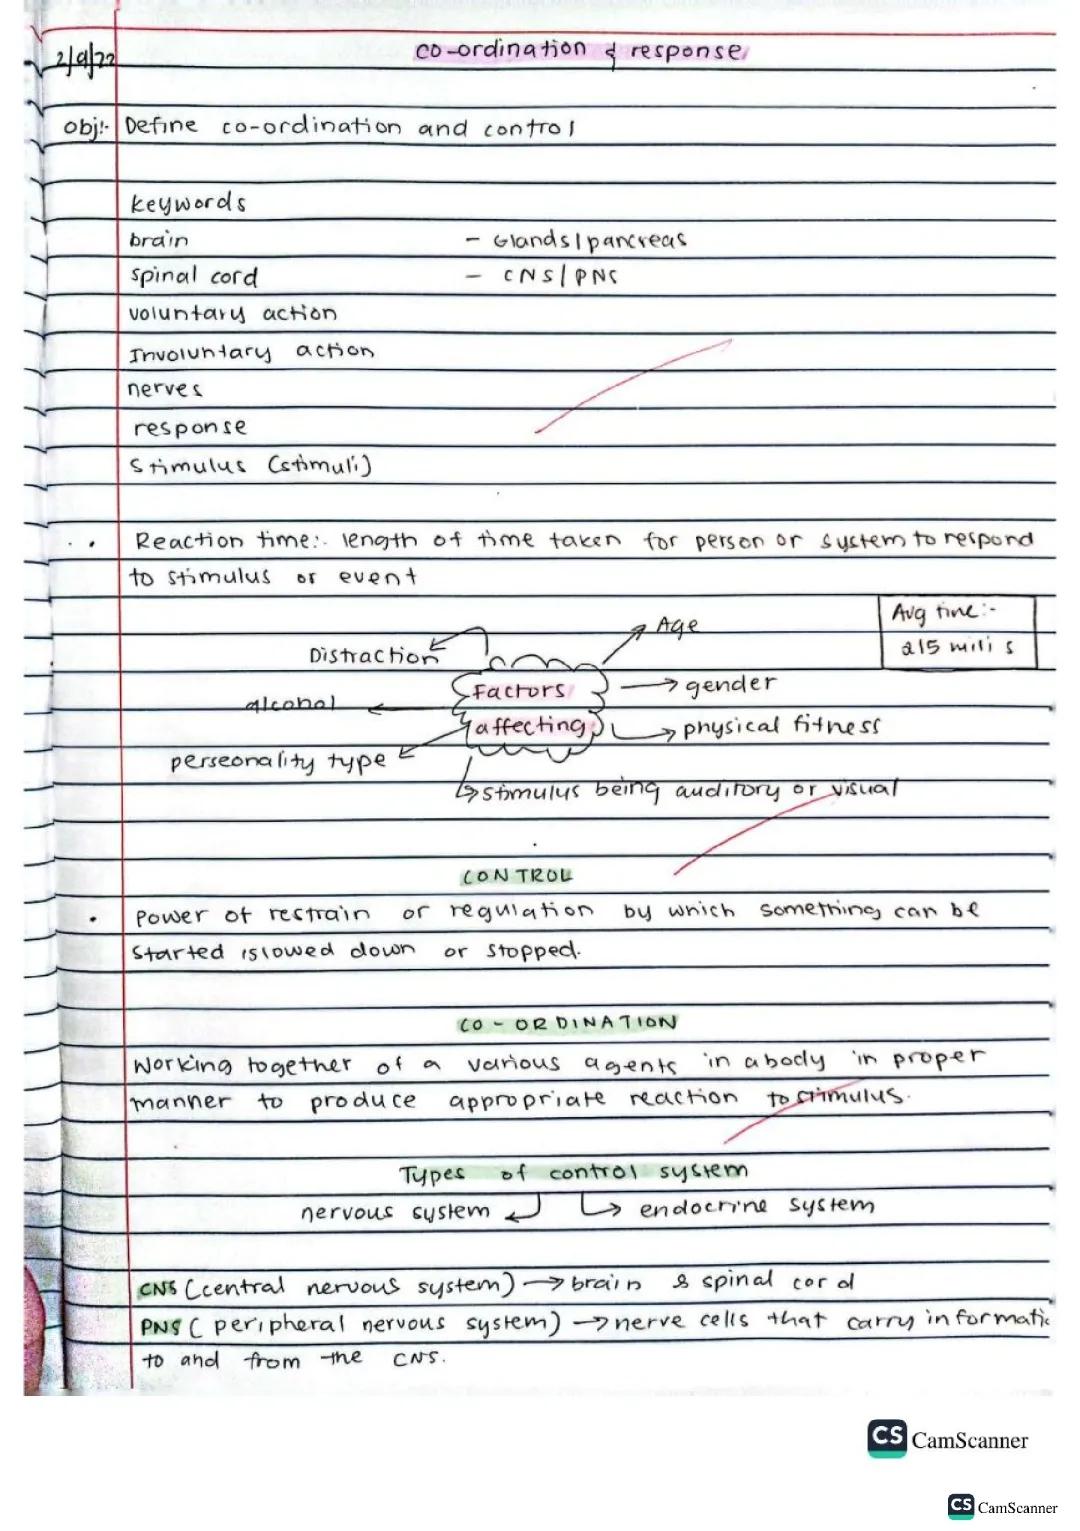 2/9/22
co-ordination & response
obj:- Define co-ordination and control
keywords
brain - Glands/pancreas
spinal cord - CNS/PNS
voluntary action
Involuntary action
nerves
response
Stimulus (stimuli)
Reaction time:- length of time taken for person or system to respond
to stimulus or event
Avg time:-
215 mili s
Age
Distraction
Factors
gender
alcohol
affecting
physical fitness
perseonality type
stimulus being auditory or visual
CONTROL
• power of restrain or regulation by which something can be
started /slowed down or stopped.
CO-ORDINATION
Working together of a various agents in a body in proper
manner to produce appropriate reaction to stimulus.
Types of control system
nervous system endocrine system
CNS (central nervous system) → brain & spinal cord
PNS (peripheral nervous system) → nerve cells that carry informatic
to and from the CNS.
CS CamScanner
CS CamScanner